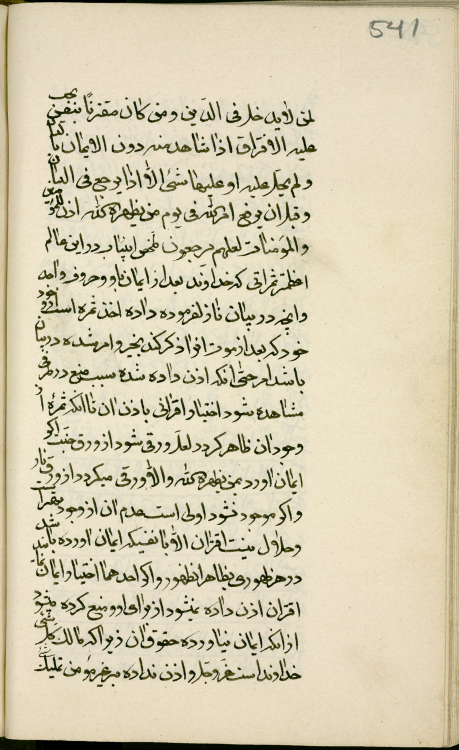 541
لمن لا يدخل في الدين و من كان مقترنا بنفس يجب
عليه الافتراق اذا شاهد منه دون الايمان بالبيان
و لم يحل عليه او عليها شئ الا اذا يرجع في البيان
و قبل ان يرفع امر الله في يوم من يظهره الله اذن للمؤمنين
و المؤمنات لعلهم يرجعون ملخص اين باب در اين عالم
اعظم ثمراتى كه خداوند بعد از ايمان باو و حروف واحد
و انچه در بيان نازل فرموده داده اخذ ثمره است از وجود
خود كه بعد از موت او را ذكر كند بخير و امر شده در بيان
باشد امر حتى انكه اذن داده شده سبب منع در طرفى
مشاهده شود اختيار اقترانى باذن ان تا انكه ثمره از
وجود ان ظاهر گردد لعل ورقى شود از ورق جنت اگر
ايمان اورد بمن يظهره الله و الا ورقى ميگردد از ورق نار
و اگر موجود نشود اولى است عدم ان از وجود
و حلال نيست اقتران الا با نفسيكه ايمان اورده باشد
در هر ظهورى بظاهر انظهور و اگر احدهما اختيار ايمان نمايد
اقتران اذن داده نميشود از براى او و منع كرده ميشود
از انكه ايمان نياورده حقوق ان زيرا كه مالك كل شئ
خداوند است عز و جل و اذن نداده بر غير مؤمن تمليك